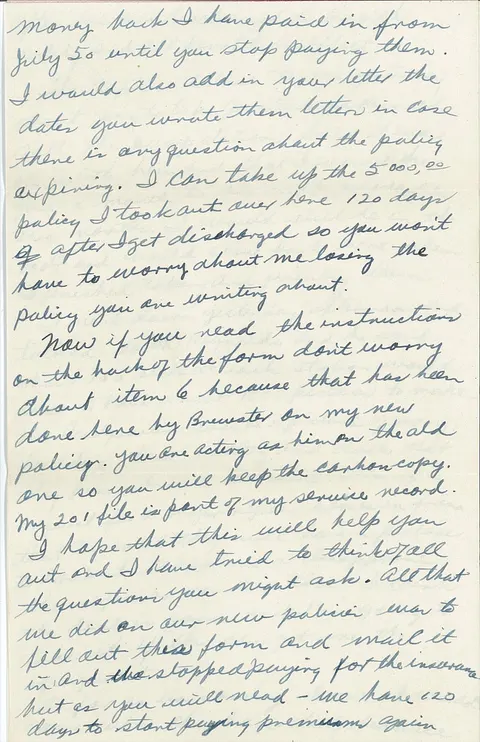 money back I have paid in from
July 50 until you stop paying them.
I would also add in your letter the
dates you wrote them letters in case
there is any question about the policy
expiring. I can take up the 5000,00
policy I took out over here 120 days
after I get discharged so you won't
have to worry about me losing the
policy you are writing about.
Now if you read the instructions
on the back of the form don't worry
about item 6 because that has been
done here by Brewster on my new
policy. you are acting as him on the old
one so you will keep the carbon copy.
My 201 file is part of my service record.
I hope that this will help you
out and I have tried to think of all
the questions you might ask. All that
we did on our new policies was to
fill out this form and mail it
in and stopped paying for the insurance
but as you will read - we have 120
days to start paying premiums again